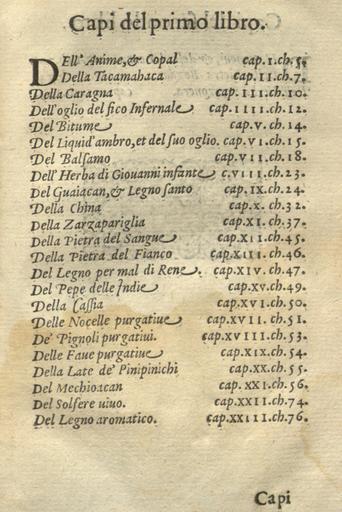 Capi del primo libro.
DEll' Anime, & Copal cap. I. ch. 5.
Della Tacamahaca cap. II. ch. 7.
Della Caragna cap. III. ch. 10.
Dell'oglio del fico Infernale cap. IIII. ch. 12.
Del Bitume cap. V. ch. 14.
Del Liquid'ambro, et del suo oglio. cap. VI. ch. 15.
Del Balsamo cap. VII. ch. 18.
Dell'Herba di Giouanni infante c. VIII. ch. 23.
Del Guaiacan, & Legno santo cap. IX. ch. 24.
Della China cap. X. ch. 32.
Della Zarzapariglia cap. XI. ch. 37.
Della Pietra del Sangue cap. XII. ch. 45.
Della Pietra del Fianco cap. XIII. ch. 46.
Del Legno per mal di Rene. cap. XIV. ch. 47.
Del Pepe delle Indie cap. XV. ch. 49.
Della Cassia cap. XVI. ch. 50.
Delle Nocelle purgatiue cap. XVII. ch. 51.
De' Pignoli purgatiui. cap. XVIII. ch. 53.
Delle Faue purgatiue cap. XIX. ch. 54.
Della Late de' Pinipinichi cap. XX. ch. 55.
Del Mechioacan cap. XXI. ch. 56.
Del Solfere uiuo. cap. XXII. ch. 74.
Del Legno aromatico. cap. XXIII. ch. 76.
Capi